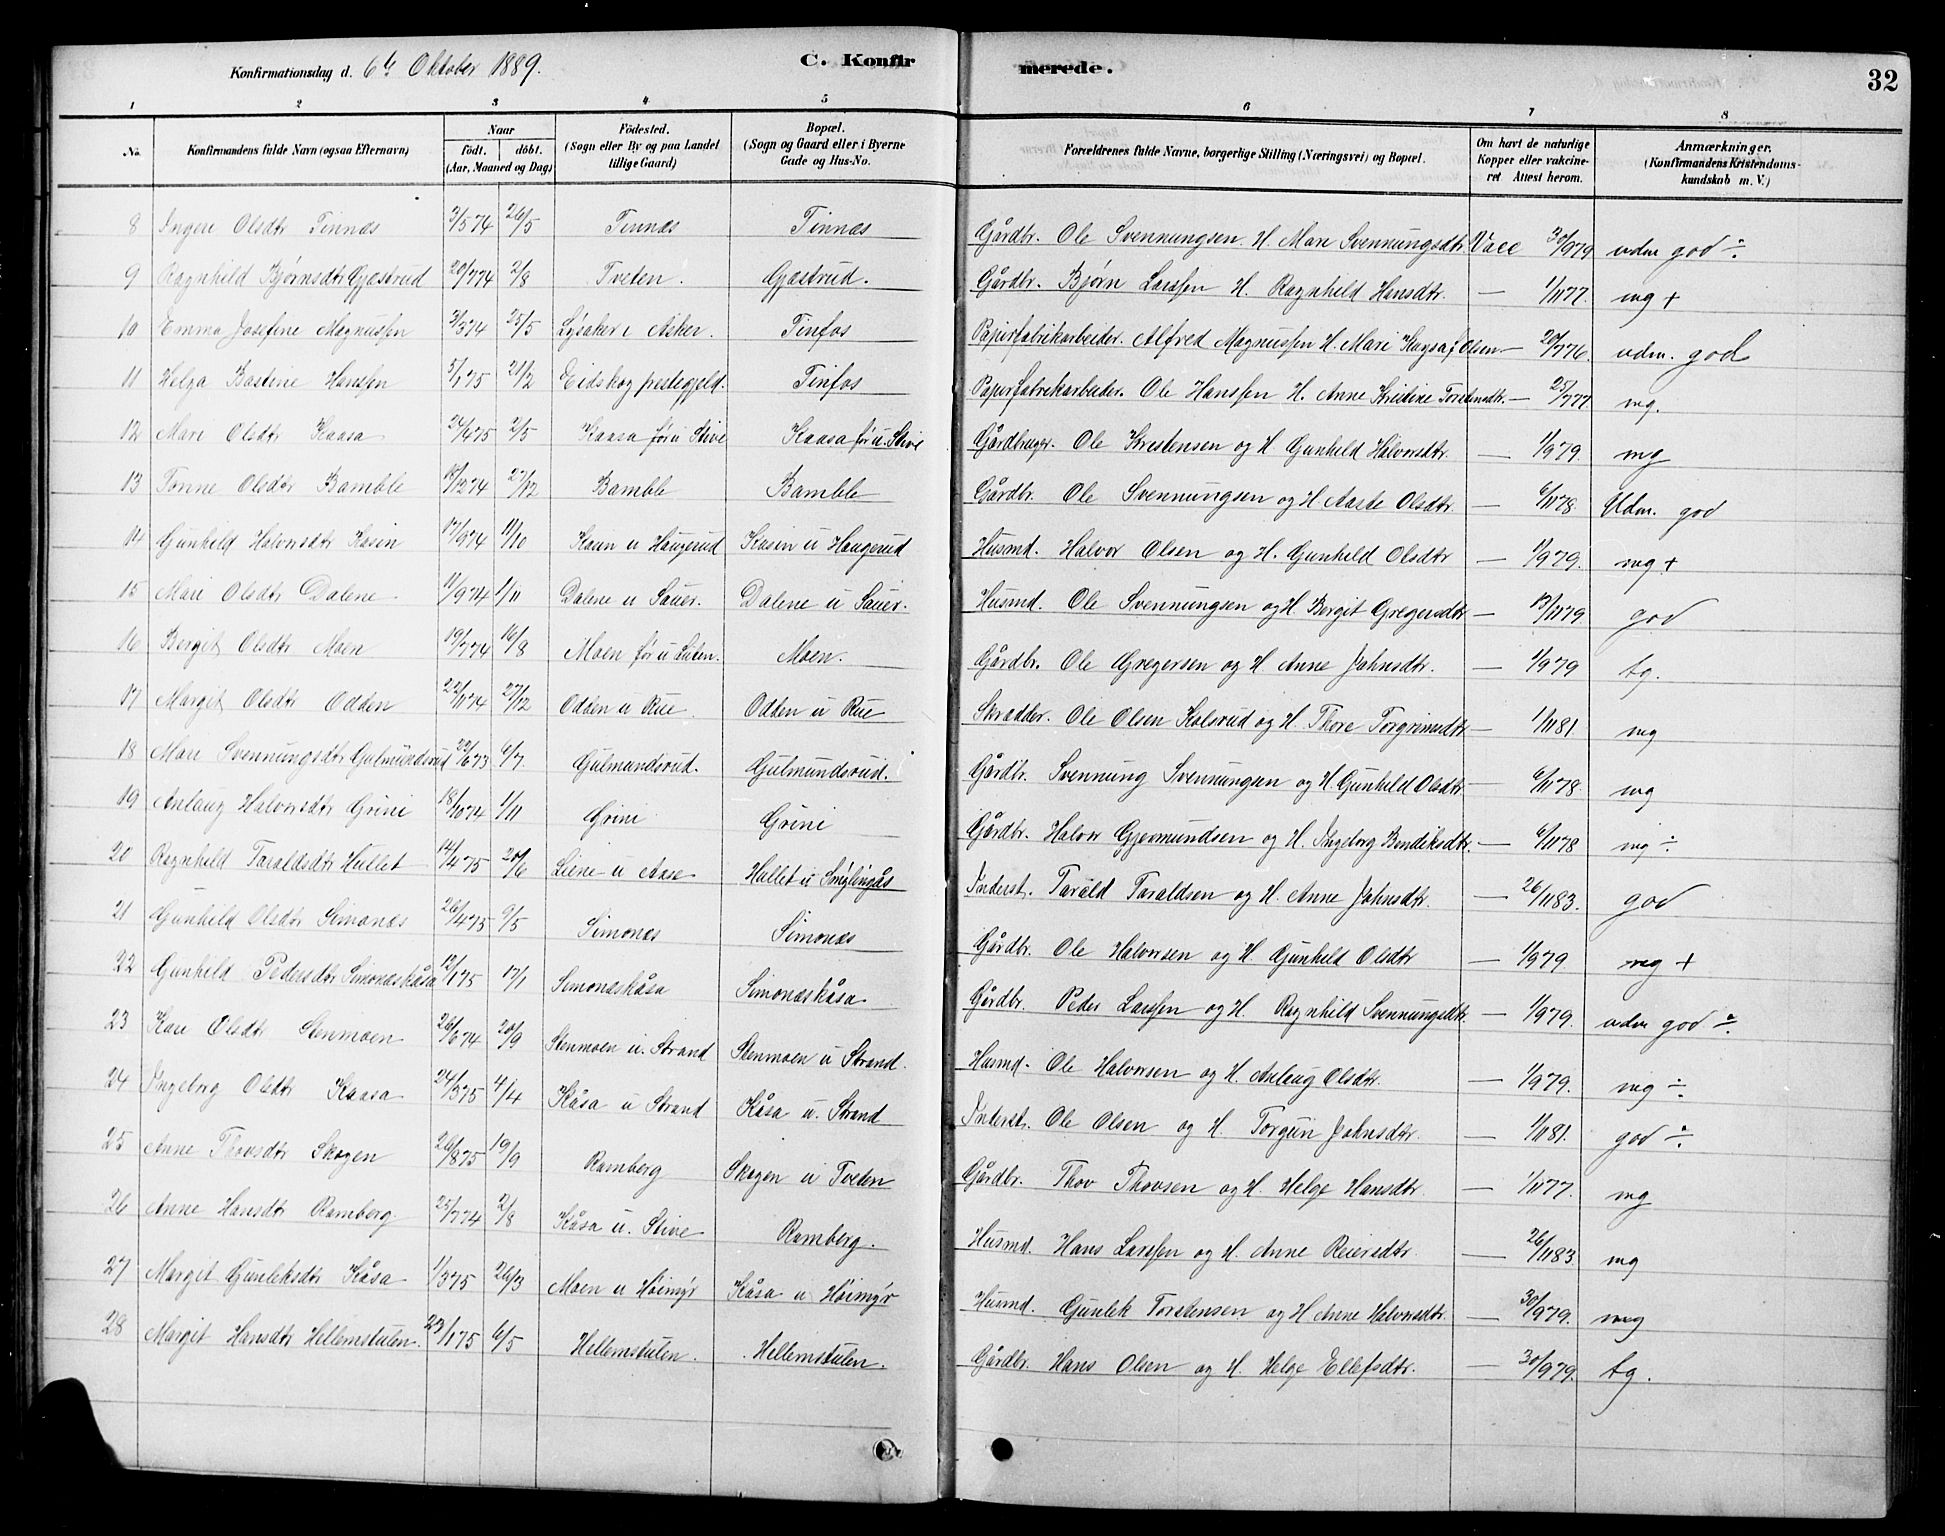 Konfirmationsdag d. 6te Oktober 1889. C. Konfirmerede. 32
1 2 3 4 5 6 7 8
No. Konfirmandens fulde Navn (ogsaa Efternavn) Naar födt. döbt. (Aar, Maaned og Dag) Födested. (Sogn eller By og paa Landet tillige Gaard) Bopæl. (Sogn og Gaard eller i Byerne Gade og Hus-No. Forældrenes fulde Navne, borgerlige Stilling (Næringsvei) og Bopæl. Om havt de naturlige Kopper eller vakcineret Attest herom. Anmærkninger. (Konfirmandens Kristendomskundskab m. V.)
8 Ingere Olsdtr Tinnæs 3/5 74 26/5 Tinnæs Tinnæs Gårdbr. Ole Svennungsen. H. Mari Svennungsdtr Vacc 30/9 79 udm god ÷
9 Ragnhild Bjørnsdtr Gjæstrud 20/7 74 2/8 Tveten. Gjæstrud. Gårdbr. Bjørn Larssen H. Ragnhild Hansdtr. — 1/11 77. mg +
10 Emma Josefine Magnussen 3/3 74 25/5 Lysaker i Asker. Tinfos Papirfabrikarbeider. Alfred Magnussen H. Mari f Olsen — 20/7 76. udm. god
11 Helga Bastine Hanssen 5/1 75 21/2 Eidskog prestegjeld. Tinfos Papirfabrikarbeider. Ole Hanssen H. Anne Kristine Torstensdtr. — 25/7 77. mg.
12 Mari Olsdtr Kaasa 24/4 75 2/5 Kaasa før u Stive Kaasa før u. Stive Gårdbruger. Ole Kristensen og H Gunhild Halvorsdtr. — 1/9 79. mg
13 Tonne Olsdtr Bamble 18/12 74 27/12 Bamble Bamble Gårdbr. Ole Svennungsen og H. Aaste Olsdtr. — 6/11 78. Udm. god
14 Gunhild Halvorsdtr Kasin 17/9 74 11/10 Kasin u Haugerud Kasin u Haugerud Husmd. Halvor Olsen og H. Gunhild Olsdtr — 1/9 79. mg +
15 Mari Olsdtr Dalene 11/9 74 1/11 Dalene u Sauer. Dalene u Sauer. Husmd. Ole Svennungsen og H. Bergit Gregersdtr — 13/11 79. god
16 Bergit Olsdtr Moen 19/7 74 16/8 Moen før u Moen. Gårdbr. Ole Gregersen og H Anne Johnsdtr. — 1/9 79 tg.
17 Margit Olsdtr Odden 22/11 74 27/12 Odden u Rue. Odden u Rue Skrædder. Ole Olsen Kolsrud og H. Thore Torgrimsdtr — 1/11 81. mg
18 Mari Svennungsdtr Gulmundsrud 22/6 73 6/7. Gulmundsrud. Gulmundsrud. Gårdbr. Svennung Svennungsen og H. Gunhild Olsdtr. — 6/11 78. mg
19 Anlaug Halvorsdtr Grini 18/10 74 1/11 Grini Grini Gårdbr. Halvor Gjermundsen og H. Ingeborg Bendiksdtr. — 6/11 78 mg ÷
20 Ragnhild Taraldsdtr Hullet 14/4 75 20/6 Liene u Aase Hullet u Smylingås Inderst. Tarald Taraldsen og H. Anne Johnsdtr. — 26/11 83. god
21 Gunhild Olsdtr Simonæs 26/4 75 9/5 Simonæs Simonæs Gårdbr. Ole Halvorsen og H. Gunhild Olsdtr — 1/9 79. mg +
22 Gunhild Pedersdtr Simonæskåsa 12/1 75 17/1 Simonæskåsa Simonæskåsa. Gårdbr. Peder Larssen og H. Ragnhild Svennungsdtr. — 1/9 79. udm god ÷
23 Kari Olsdtr Stenmoen 26/6 74 20/9 Stenmoen u. Strand Stenmoen u Strand. Husmd. Ole Halvorsen og H. Anlaug Olsdtr. — 1/9 79. mg ÷
24 Ingeborg Olsdtr Kaasa 24/3 75 4/4 Kåsa u Strand Kåsa u. Strand Inderst. Ole Olsen og H. Torgun Johnsdtr. — 1/11 81. god ÷
25 Anne Thovsdtr Skogen 26/8 75 19/9 Ramberg Skogen u Tveten Gårdbr. Thov Thovsen og H. Helge Hansdtr — 1/11 77. mg
26 Anne Hansdtr Ramberg. 25/7 74 2/8 Kåsa u. Stive Ramberg. Husmd. Hans Larssen og H. Anne Reiersdtr. — 26/11 83. mg
27 Margit Gunleksdtr Kåsa 1/3 75 26/3 Moen u Höimyr Kåsa u Höimyr Husmd. Gunlek Torstensen og H Anne Halvorsdtr. — 30/9 79. mg
28 Margit Hansdtr Hellemstulen. 23/1 75 6/5 Hellemstulen. Hellemstulen. Gårdbr. Hans Olsen og H. Helge Ellefsdtr. — 30/9 79. tg.